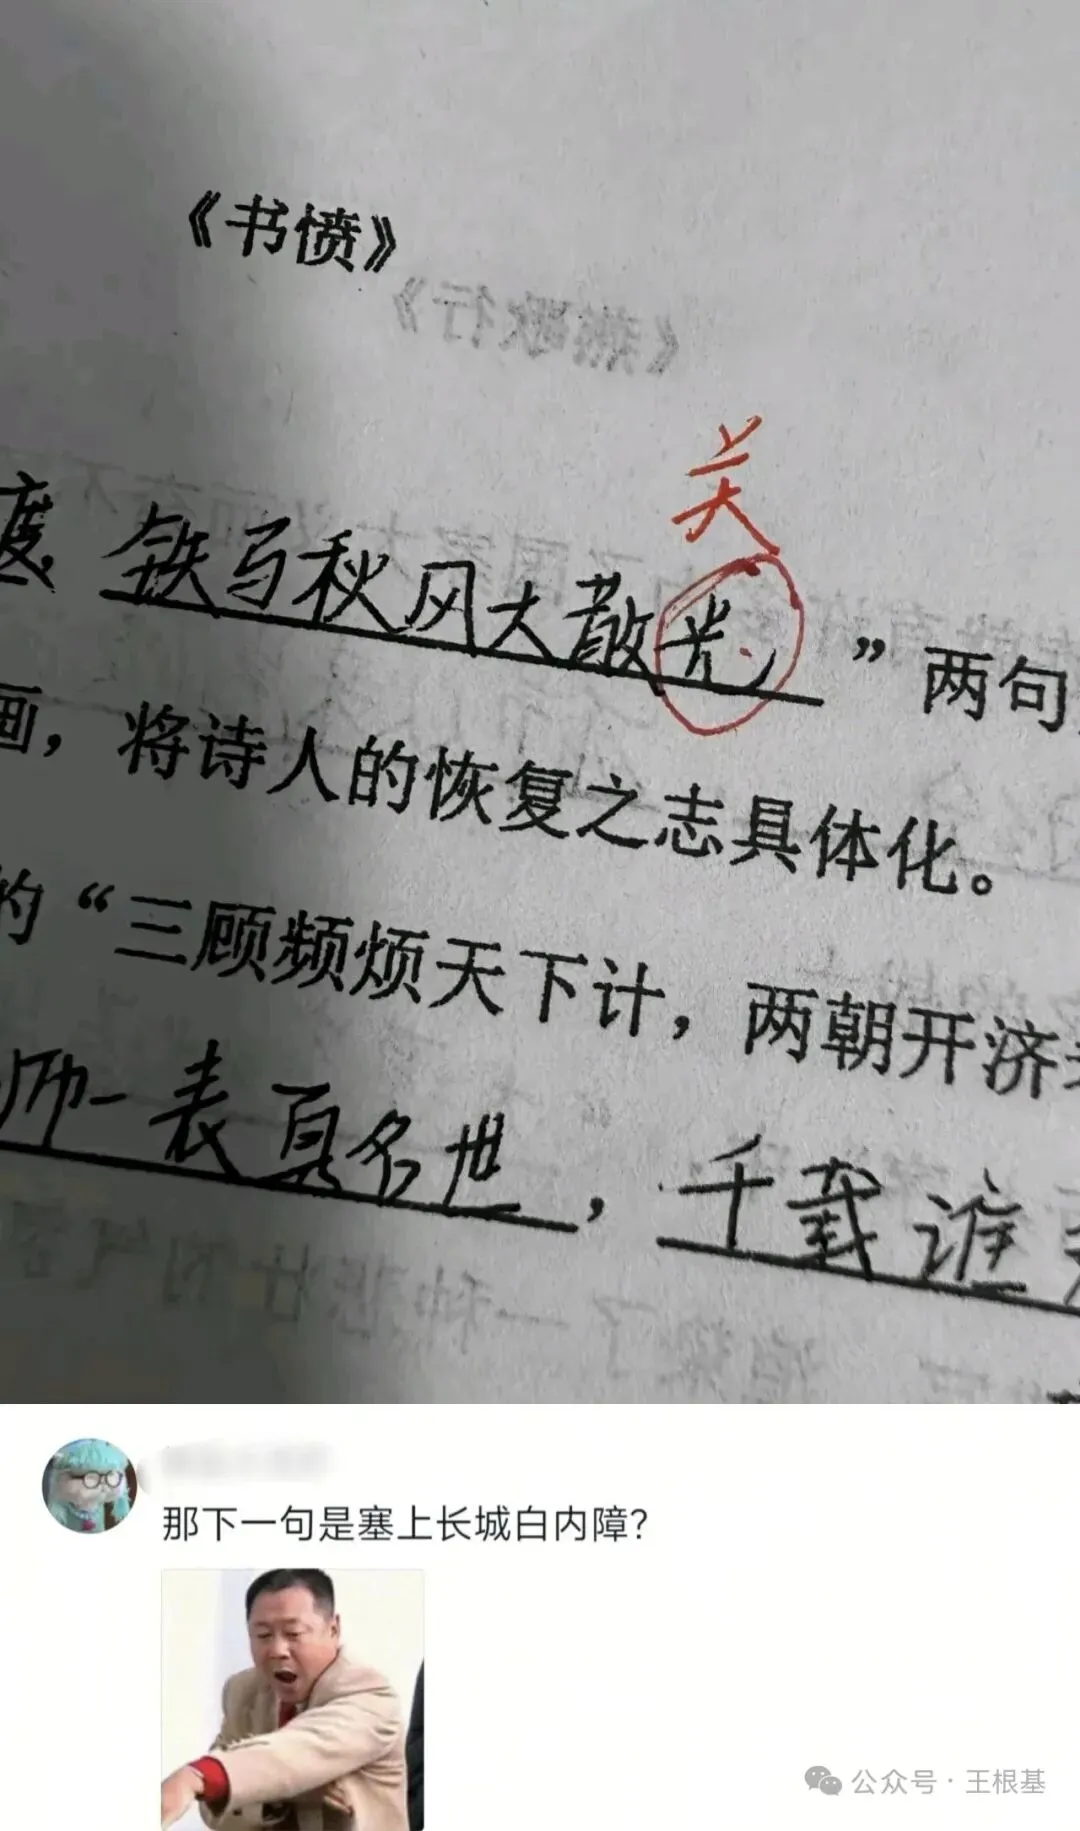 《书愤》
《燕歌行》
关
度 铁马秋风大散光”两句
画，将诗人的恢复之志具体化。
的“三顾频烦天下计，两朝开济
师一表真名世，千载谁
那下一句是塞上长城白内障?
公众号·王根基